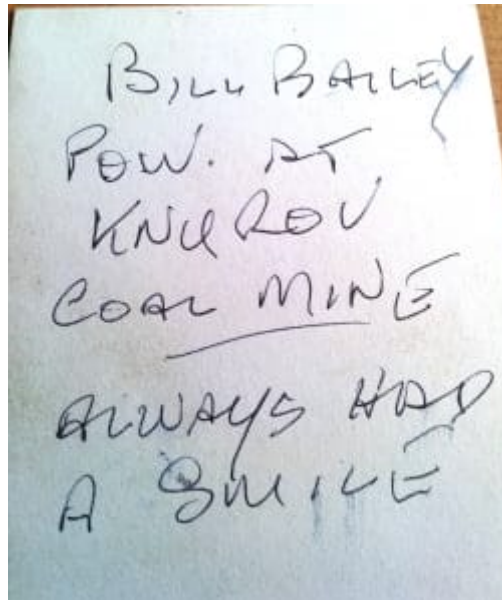 BILL BAILEY
POW. AT
KNUROV
COAL MINE
ALWAYS HAD
A SMILE